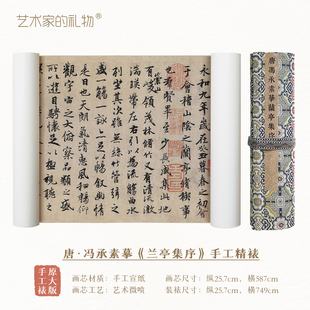 艺术家的礼物®
永和九年歲在癸丑暮春之初會
于會稽山陰之蘭亭脩稧事
也羣賢畢至少長咸集此地
有崇山峻領茂林脩竹又有清流激
湍暎帶左右引以為流觴曲水
列坐其次雖無絲竹管弦之
盛一觴一詠亦足以暢敘幽情
是日也天朗氣清惠風和暢仰
觀宇宙之大俯察品類之盛
所以遊目騁懷足以極視聽
唐馮承素摹蘭亭集序
唐·冯承素摹《兰亭集序》手工精裱
原大版
手工裱
画芯材质：手工宣纸
画芯工艺：艺术微喷
画芯尺寸：纵25.7cm，横587cm
装裱尺寸：纵25.7cm，横749cm